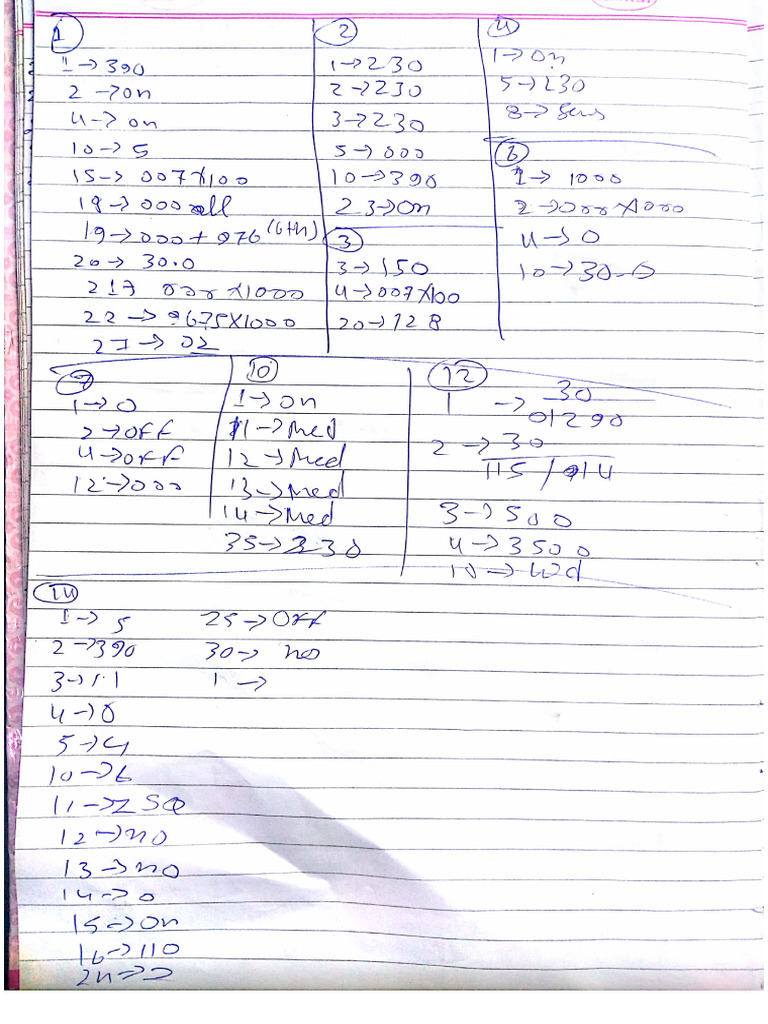 1
1 → 390
2 → on
4 → on
10 → 5
15 → 007 × 100
18 → 000 all
19 → 000 + 976 (6th)
20 → 30.0
217 000 × 1000
22 → 9675 × 1000
27 → 02
2
1 → 230
2 → 230
3 → 230
5 → 000
10 → 390
23 → on
3
3 → 150
4 → 007 × 100
20 → 128
4
1 → on
5 → 230
8 →
6
1 → 1000
2 → 000 × 1000
4 → 0
10 → 30.0
7
1 → 0
2 → OFF
4 → OFF
12 → 000
10
1 → on
11 → Med
12 → Med
13 → Med
14 → Med
35 → 230
12
1 → 30
01290
2 → 30
115 / 914
3 → 500
4 → 3500
10 →
14
1 → 5
2 → 390
3 → 1.1
4 → 0
5 → 4
10 → 6
11 → 250
12 → no
13 → no
14 → 0
15 → on
16 → 110
25 → OFF
30 → no
1 →